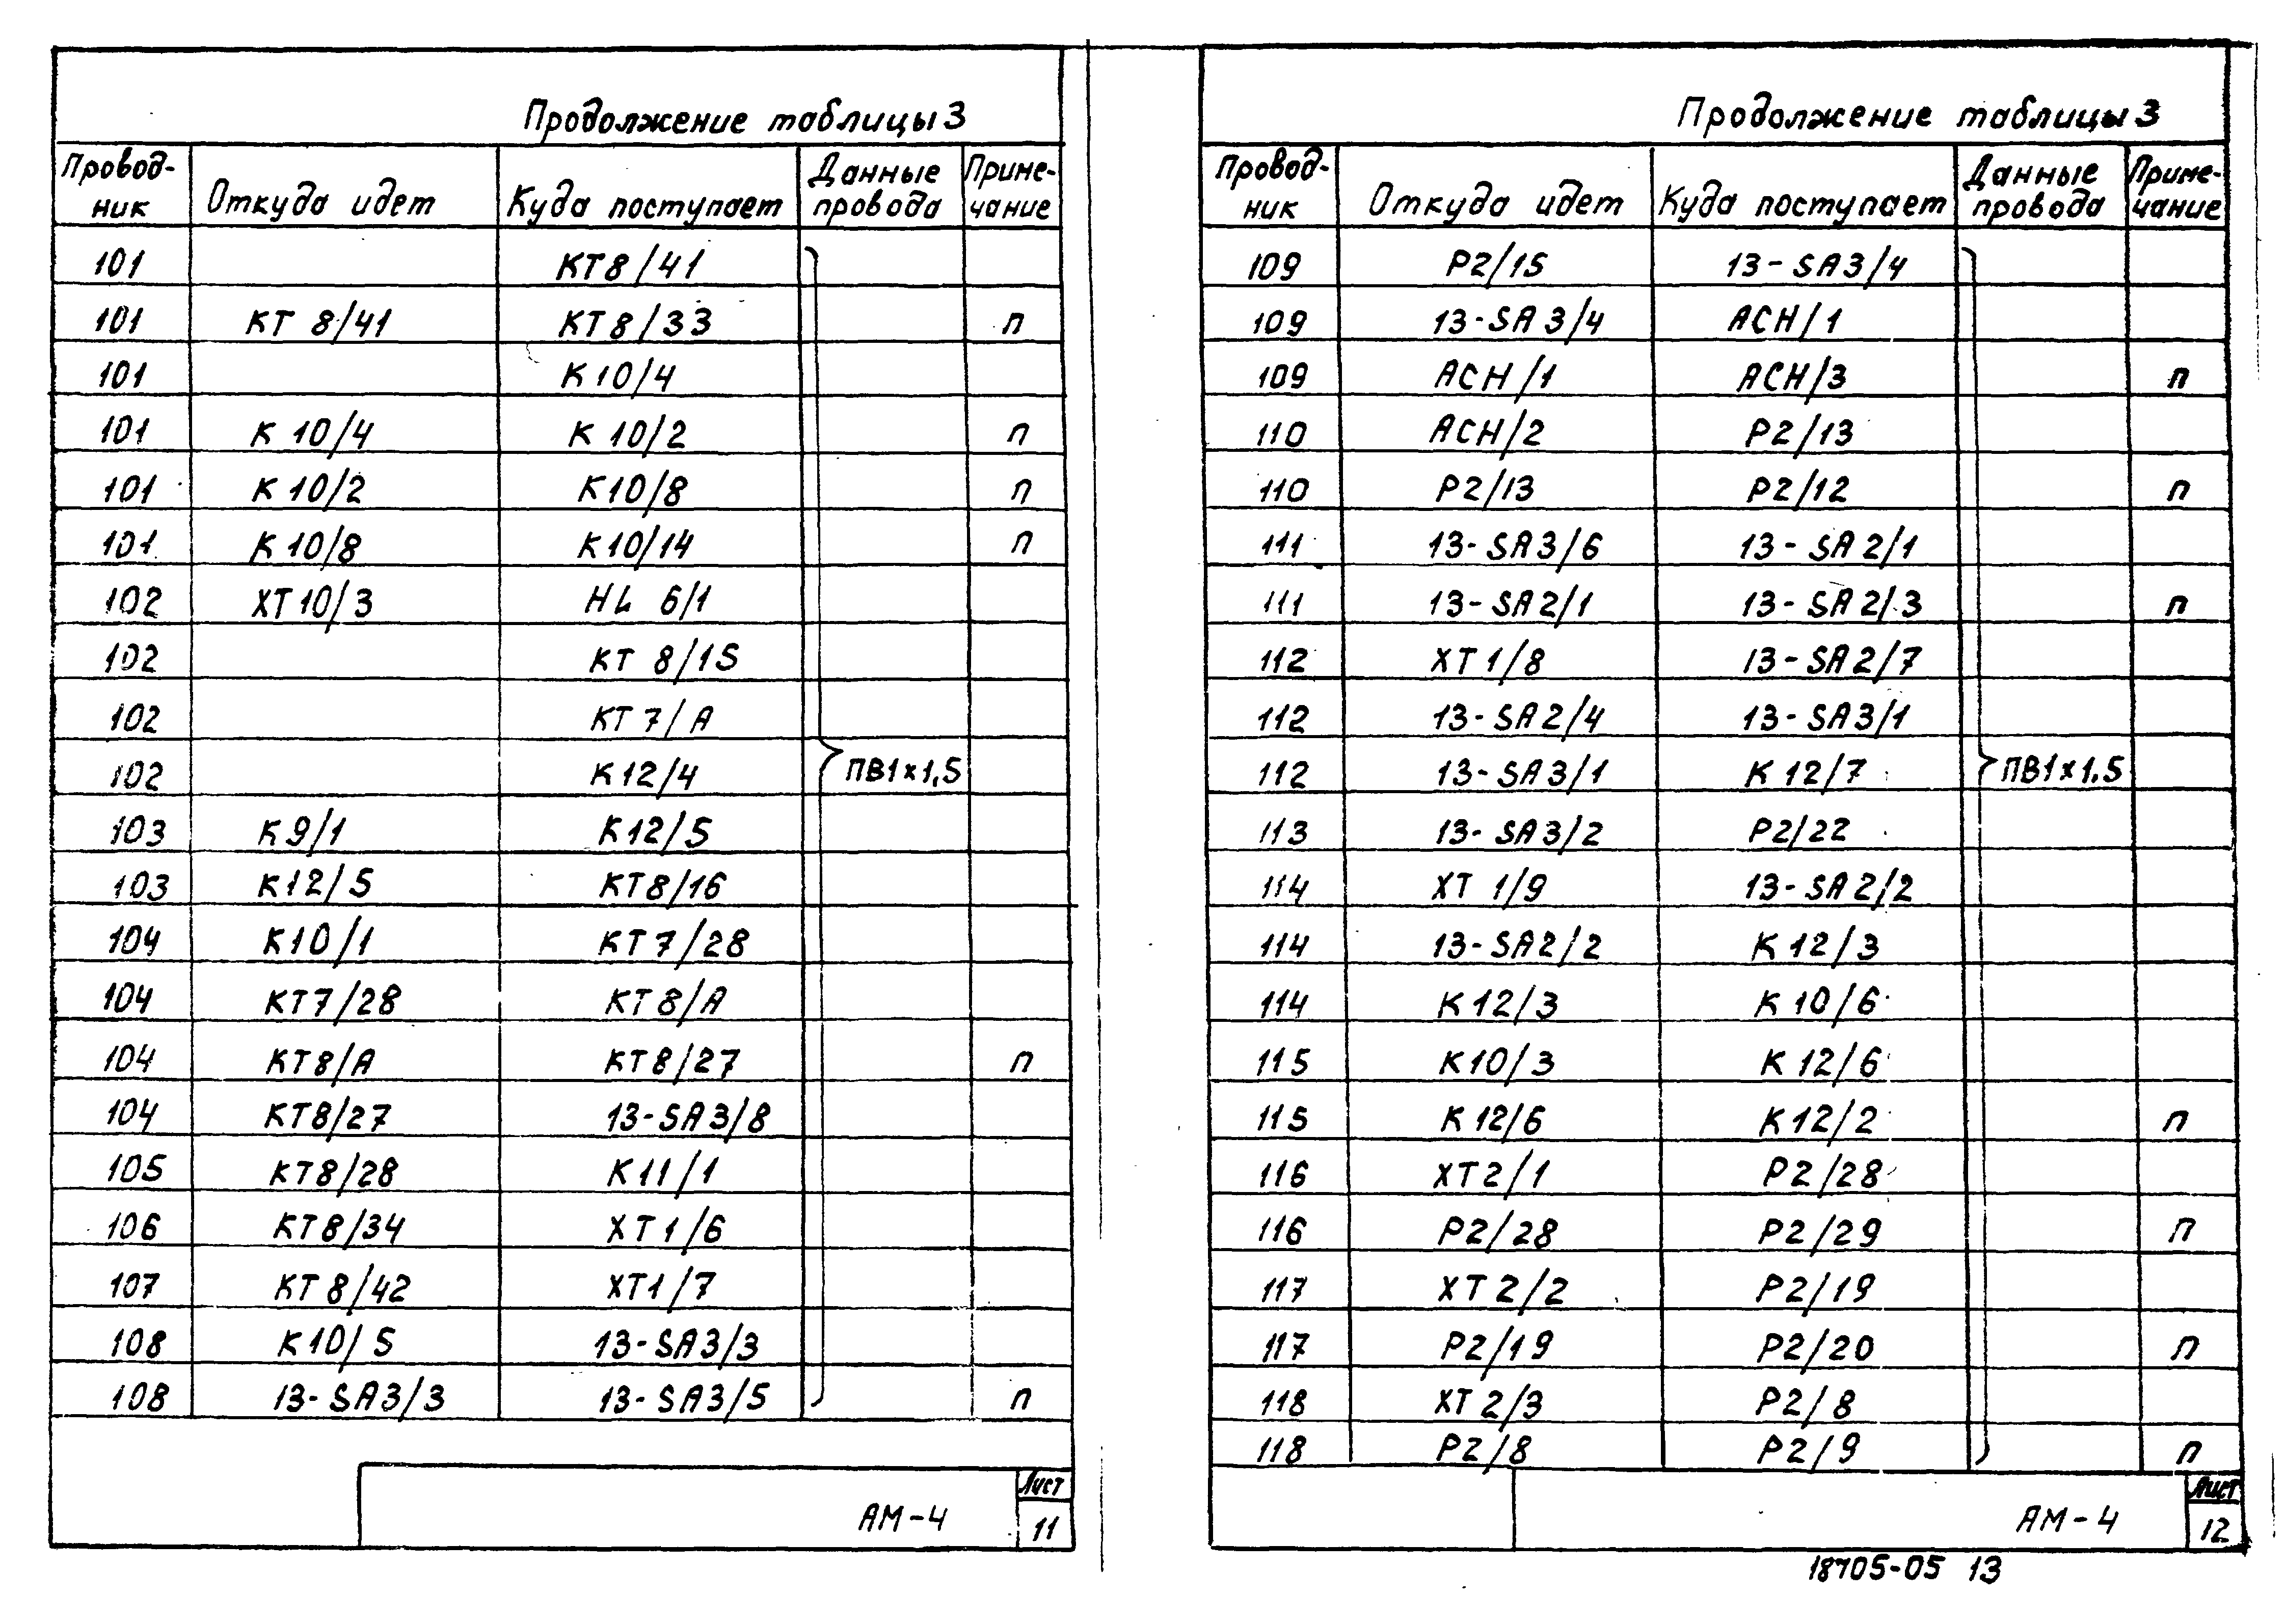 Продолжение таблицы 3
Провод-ник Откуда идет Куда поступает Данные провода Приме-чание
101 КТ8/41
101 КТ 8/41 КТ8/33 п
101 К10/4
101 К 10/4 К 10/2 п
101 К 10/2 К10/8 п
101 К 10/8 К10/14 п
102 ХТ10/3 HL 6/1
102 КТ 8/15
102 КТ7/А
102 К12/4 ПВ1х1,5
103 К9/1 К12/5
103 К12/5 КТ8/16
104 К10/1 КТ7/28
104 КТ7/28 КТ8/А
104 КТ8/А КТ8/27 п
104 КТ8/27 13-SA3/8
105 КТ8/28 К11/1
106 КТ8/34 ХТ1/6
107 КТ8/42 ХТ1/7
108 К10/5 13-SA3/3
108 13-SA3/3 13-SA3/5 п
АМ-4
Лист
11
Продолжение таблицы 3
Провод-ник Откуда идет Куда поступает Данные провода Приме-чание
109 Р2/15 13-SA3/4
109 13-SA3/4 АСН/1
109 АСН/1 АСН/3 п
110 АСН/2 Р2/13
110 Р2/13 Р2/12 п
111 13-SA3/6 13-SA2/1
111 13-SA2/1 13-SA2/3 п
112 ХТ1/8 13-SA2/7
112 13-SA2/4 13-SA3/1
112 13-SA3/1 К12/7 ПВ1х1.5
113 13-SA3/2 Р2/22
114 ХТ 1/9 13-SA2/2
114 13-SA2/2 К12/3
114 К12/3 К10/6
115 К10/3 К12/6
115 К12/6 К12/2 п
116 ХТ2/1 Р2/28
116 Р2/28 Р2/29 п
117 ХТ2/2 Р2/19
117 Р2/19 Р2/20 п
118 ХТ2/3 Р2/8
118 Р2/8 Р2/9 п
АМ-4
Лист
12
18705-05 13